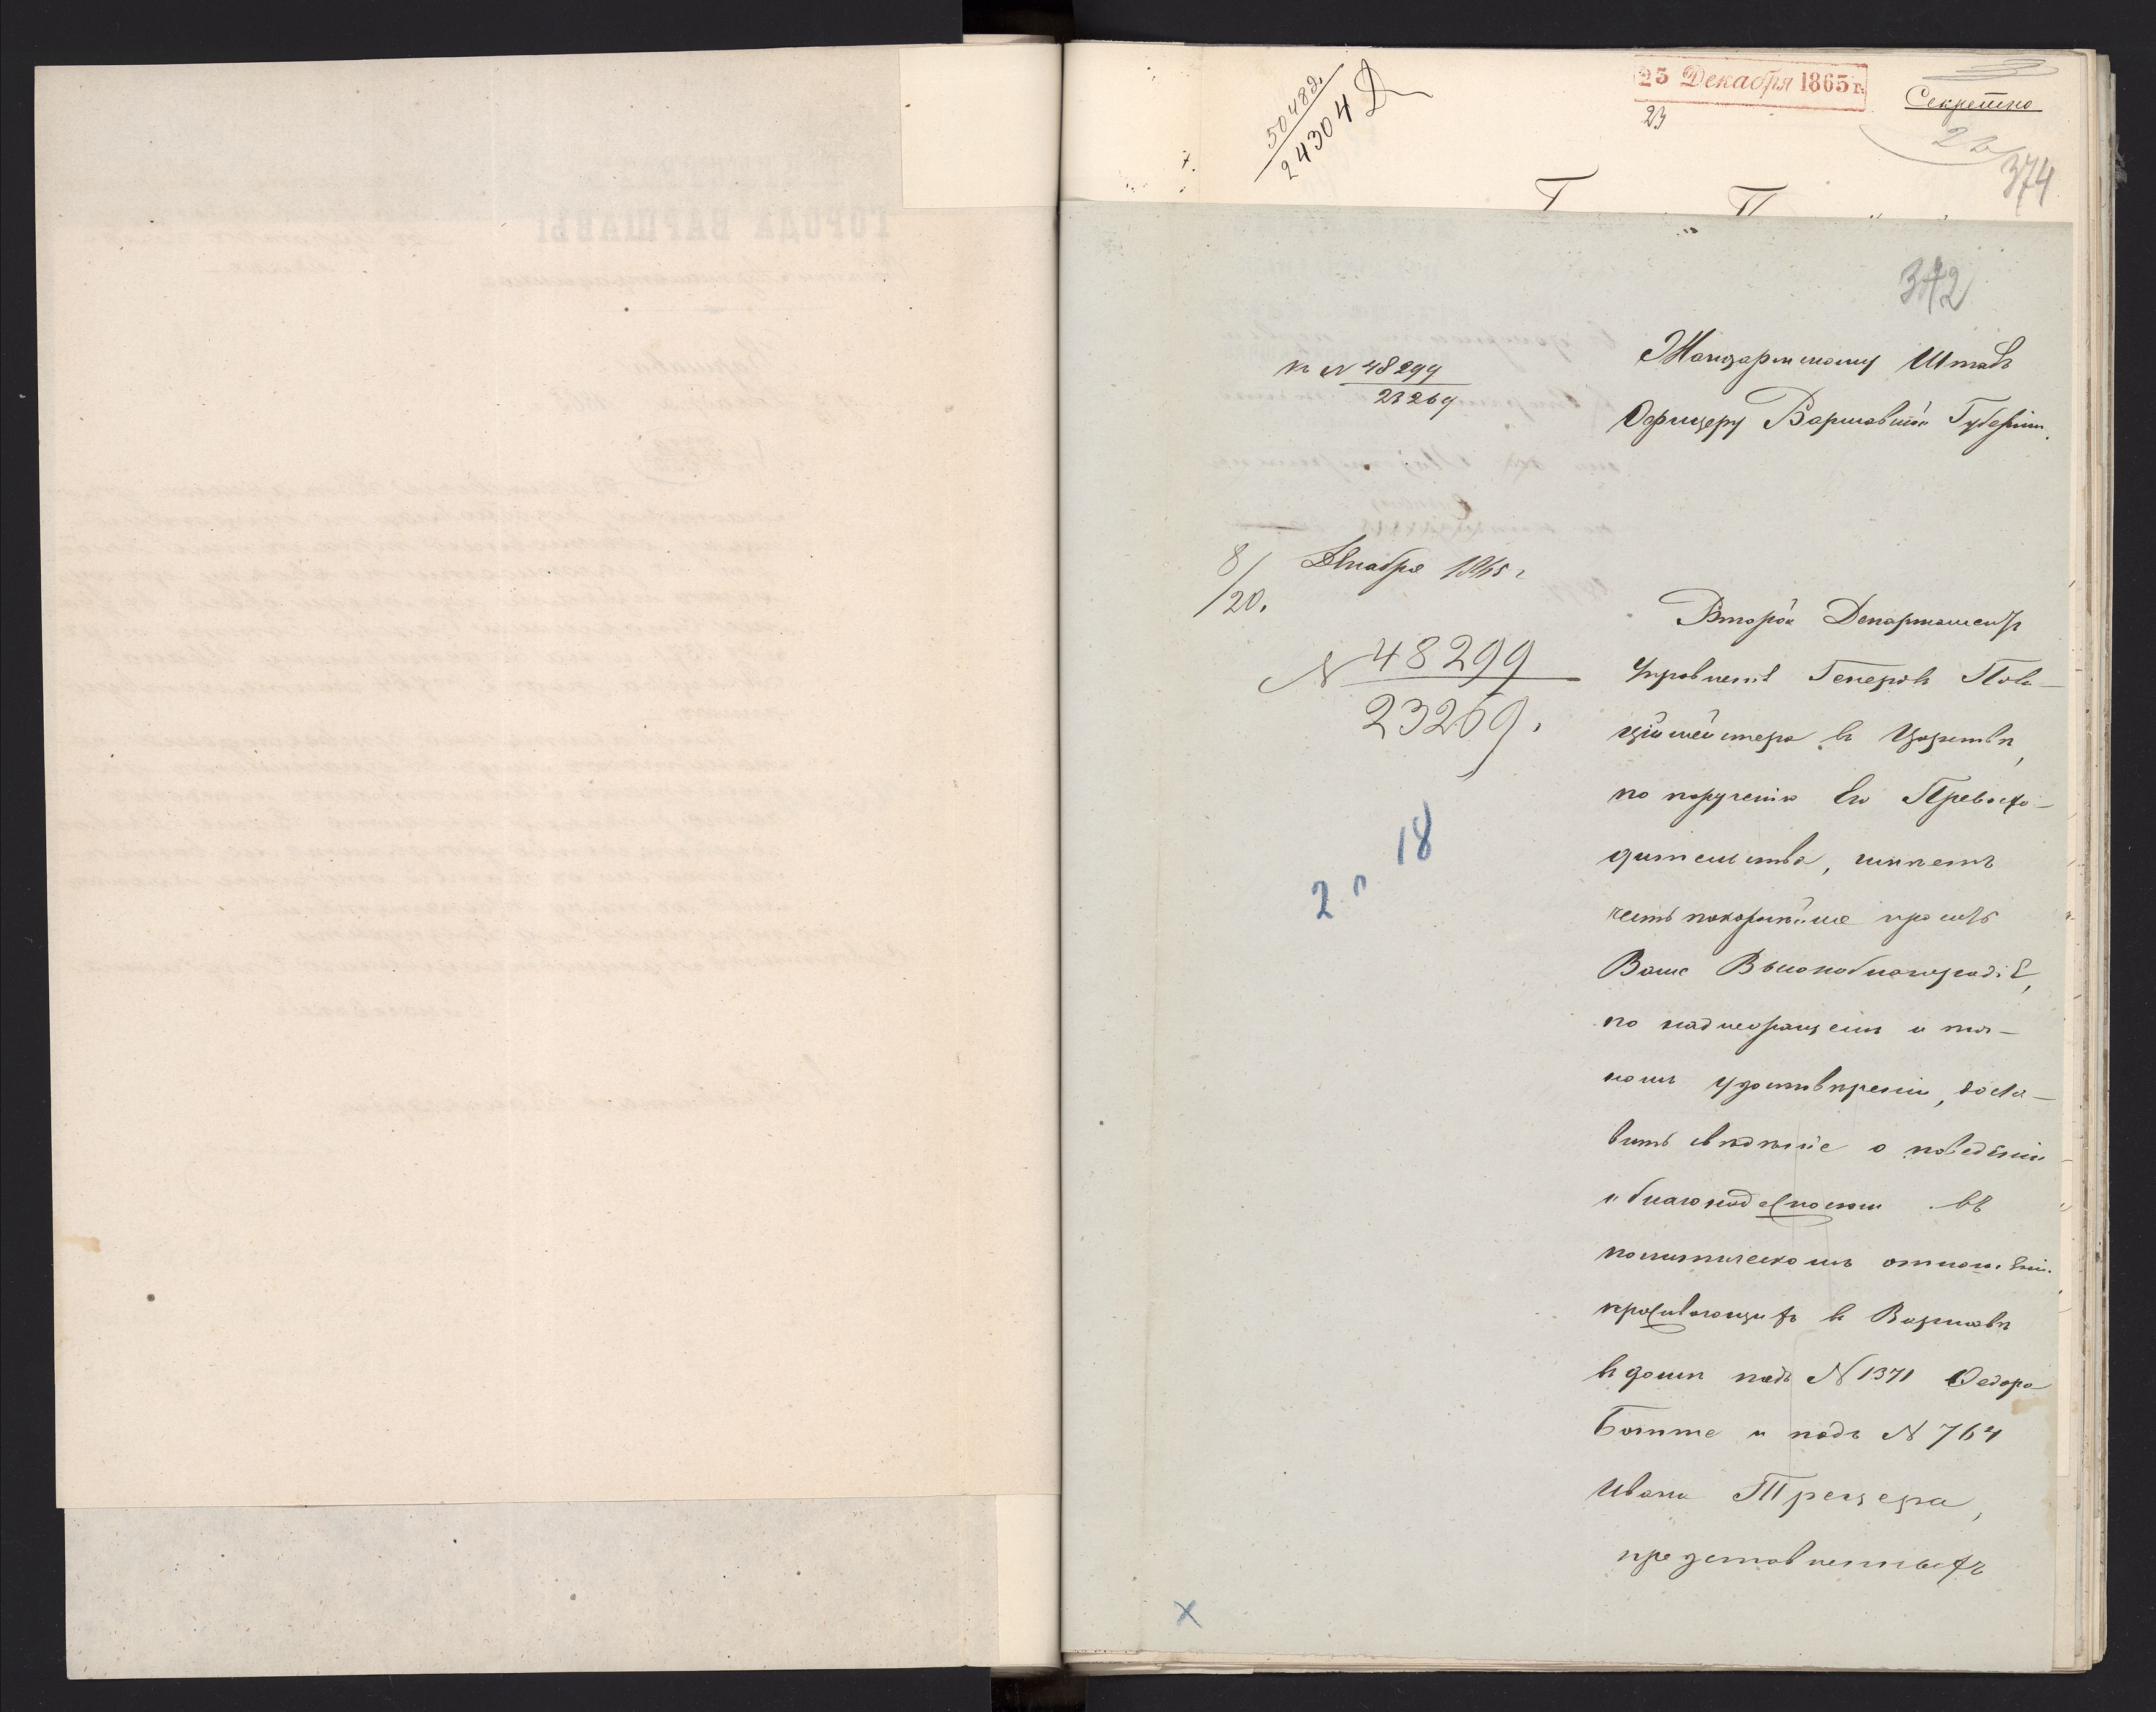 50482
24304 Д
25 Декабря 1865 г.
23
Секретно
26
374
342
к N 48299
23269
Жандармскому Штабъ
Офицеру Варшавской Губерніи.
8/20. Декабря 1865 г
N 48299
23269.
18
2 п
Второй Департаментъ
Управленія Генералъ Поли-
цiймейстера въ Царствѣ,
по порученію Его Превосхо-
дительства, имѣетъ
честь покорнѣйше просить
Ваше Высокоблагородіе,
по надлежащемъ и точ-
номъ удостовѣреніи, доста-
вить свѣдѣніе о поведеніи
и благонадежности въ
политическомъ отношеніи
проживающихъ въ Варшавѣ
въ домѣ подъ N 1371 Федора
Ботте и подъ N 764
Ивана Трецера,
представленныхъ